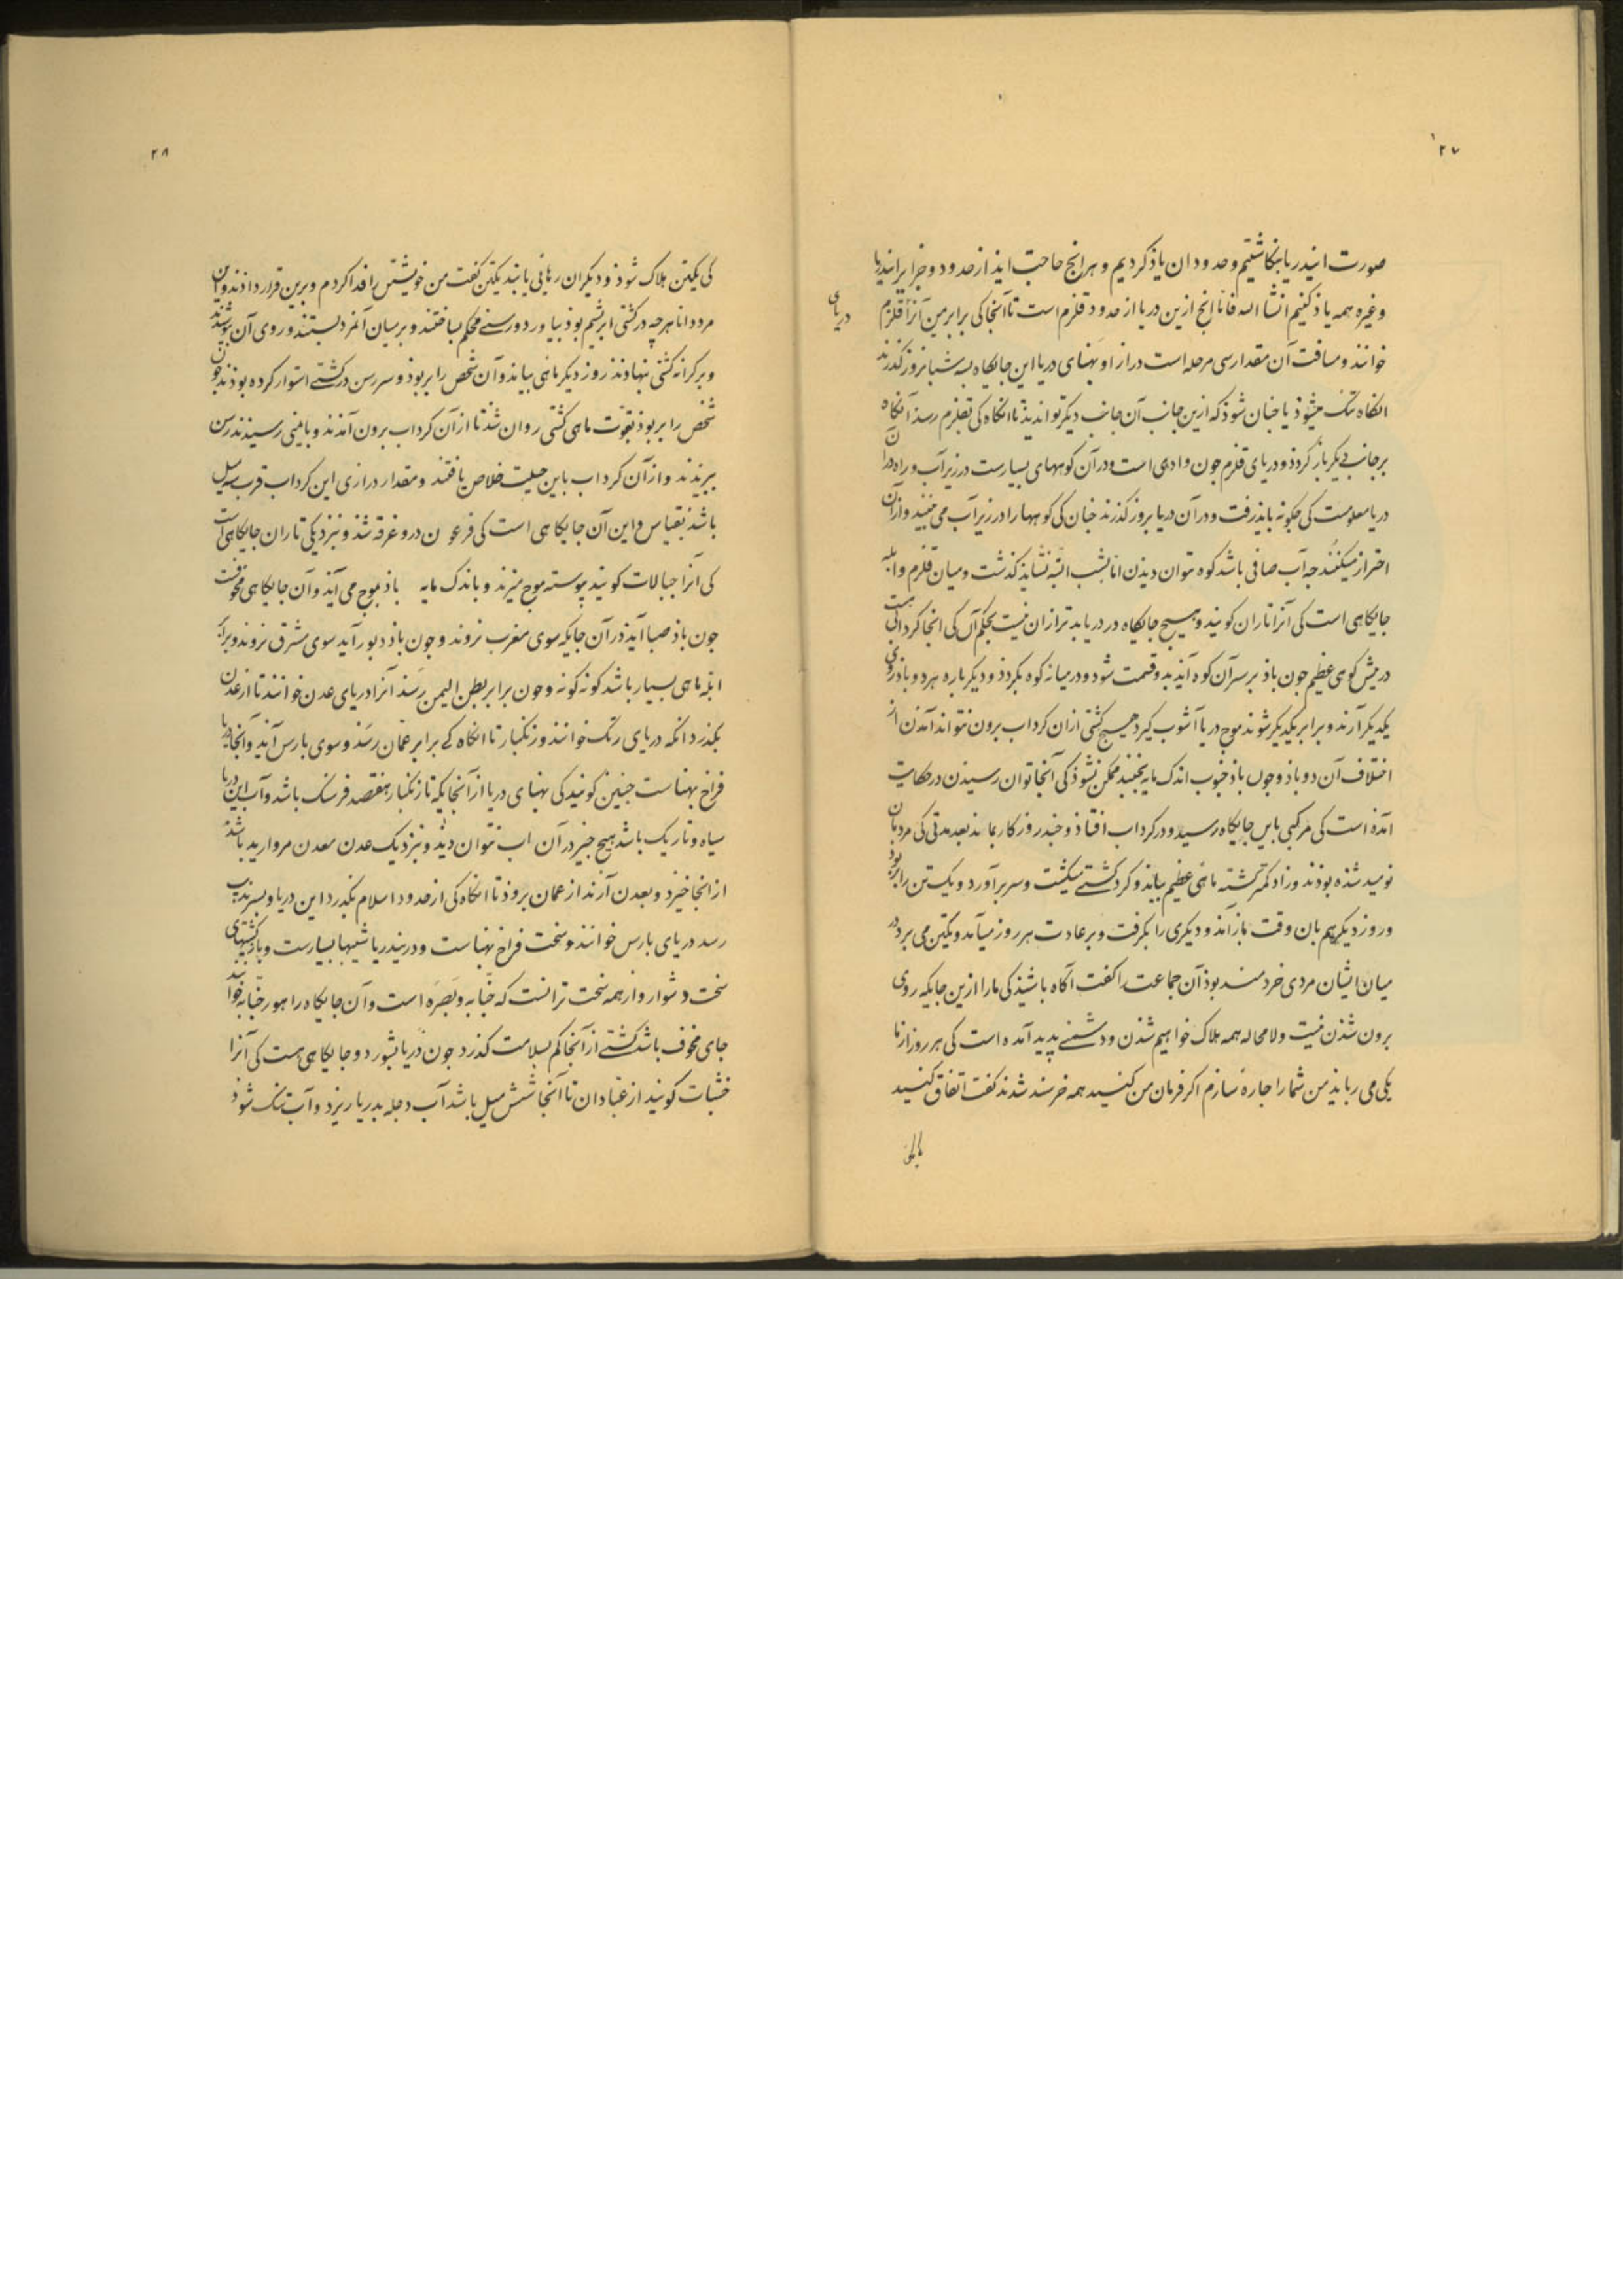 ۲۷
صورت ایندریا بنکاشتیم وحدود ان یاذ کردیم و هرانج حاجت ایذ از حدود و جزایر ایندریا
وغیره همه یاذ کنیم انشا الله فاما انج ازین دریا از حدود قلزم است تا آنجا کی برابر من آنرا قلزم
دریای
خوانند ومسافت آن مقدار سی مرحله است دراز او پهنای دریا این جایکاه بسه شبانروز کذرند
انکاه تنک میشوذ یا جنان شوذ که ازین جانب آن جانب دیکر تواندیذ تا انکاه کی بقلزم رسذ آنکاه
بر جانب دیکر باز کردذ و دریای قلزم جون وادی است و در آن کوههای بسیارست در زیر آب و راه در آن
دریا معلومست کی جکونه بایذ رفت و در آن دریا بروز کذرند جنان کی کوهها را در زیر آب می بینند و از آن
احتراز میکنند جه آب صافی باشد کوه توان دیذن اما بشب البته نشایذ کذشت ومیان قلزم و ایله
جایکاهی است کی آنرا تاران کویند و هیچ جایکاه در دریا بدتر از ان نیست بحکم آن کی انجا کردابی است
در پیش کوی عظیم جون باذ بر سر آن کوه آیذ بدو قسمت شود و در میانه کوه بکردذ و دیکر باره هر دو باذ روی
یکدیکر آرند و برابر یکدیکر شوند موج دریا آشوب کیرد هیسج کشتی از ان کرداب برون نتواند آمذن از
اختلاف آن دو باذ وجون باذ جنوب اندک مایه بجنبد ممکن نشوذ کی آنجا توان رسیذن در حکایت
آمذه است کی مرکبی باین جایکاه رسید و در کرداب افتاذ و جند روز کار بماند بعد مدتی کی مردمان
نومید شده بوذند و زاد کمتر کشته ماهی عظیم بیامذ و کرد کشتی میکشت وسر بر آورد و یک تن را بربود
و روز دیکر هم بان وقت باز آمذ و دیکری را بکرفت و بر عادت هر روز میآمد و یکتن می برد در
میان ایشان مردی خردمند بوذ آن جماعت را کفت آکاه باشیذ کی ما را ازین جایکه روی
برون شذن نیست و لامحاله همه هلاک خواهیم شذن و دشمنی پدید آمده است کی هر روز از ما
یکی می ربایذ من شما را جاره سازم اکر فرمان من کنید همه خرسند شدند کفت اتفاق کنید
۲۸
کی یکتن هلاک شوذ و دیکران رهائی یابند یکتن کفت من خویشتن را فدا کردم وبرین قرار دادند و این
مرد دانا هرچه در کشتی ابریشم بوذ بیاورد و رسنی محکم بساختند و بر میان آنمرد بستند و روی آن بپوشیدند
و بر کرانه کشتی نهاذند روز دیکر ماهی بیامذ و آن شخص را بربوذ و سر رسن در کشتی استوار کرده بوذند جون
شخص را بربوذ بقوت ماهی کشتی روان شذ تا از آن کرداب برون آمذند و بایمنی رسیذند رسن
ببریذند و از آن کرداب باین حیلت خلاص یافتند و مقدار درازی این کرداب قرب سه میل
باشذ بقیاس و این آن جایکاهی است کی فرعون درو غرقه شذ و بنزدیکی تاران جایکاهی است
کی آنرا جبالات کویند پیوسته موج میزند و باندک مایه باذ بموج می آیذ و آن جایکاهی مخوفست
جون باذ صبا آیذ در آن جایکه سوی مغرب نروند و جون باذ دبور آید سوی مشرق نروند و برابر
ابله ماهی بسیار باشد کونه کونه و جون برابر بطن الیمن رسذ آنرا دریای عدن خوانند تا از عدن
بکذرد انکه دریای زنک خوانند و زنکبار تا انکاه کی برابر عمان رسذ وسوی بارس آید و آنجا دریا
فراخ بهناست جنین کویند کی بهنای دریا از آنجایکه تا زنکبار هفتصد فرسنک باشد و آب این دریا
سیاه و تاریک باشد هیج جیز در آن اب نتوان دید و بنزدیک عدن معدن مروارید باشذ
از انجا خیزد و بعدن آرند از عمان بروذ تا انکاه کی از حدود اسلام بکذرد این دریا و بسرندیب
رسد دریای بارس خوانند و سخت فراخ بهناست و درین دریا شیبها بسیارست و با کشتیهای
سخت دشوار و از همه سخت تر انست که جنابه و بصره است و آن جایکاه را هور جنابه خوانند
جای مخوف باشد کشتی از آنجا کم بسلامت کذرد جون دریا بشورد و جایکاهی هست کی آنرا
خشبات کویند از عبادان تا آنجا شش میل باشد آب دجله بدریا ریزد و آب تنک شوذ